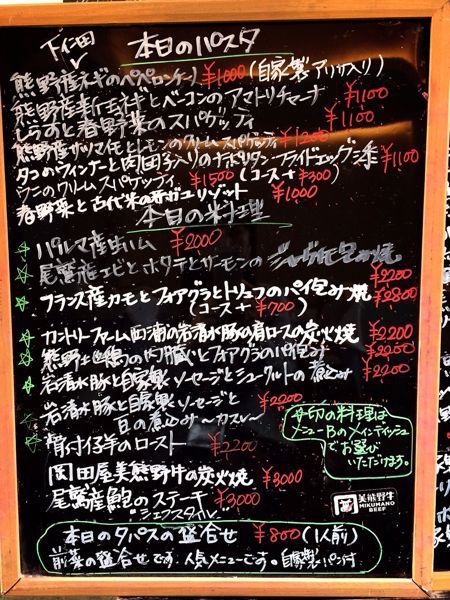 下仁田
本日のパスタ
熊野産ネギのペペロンチーノ ¥1000 (自家製アリッサ入り)
熊野産新玉ネギとベーコンのアマトリチャーナ ¥1100
しらすと春野菜のスパゲッティ ¥1100
熊野産サツマ芋とレモンのクリームスパゲッティ ¥1200
タコのウィンナーと肉団子入りのナポリタン フライドエッグ添 ¥1100
ウニのクリームスパゲッティ ¥1500 (コース+¥300)
春野菜と古代米の リゾット ¥1000
本日の料理
パルマ産生ハム ¥2000
尾鷲産エビとホタテとサーモンの 包み焼 ¥2200
フランス産カモとフォアグラとトリュフのパイ包み焼 ¥2800
(コース+¥700)
カントリーファーム田浦の岩清水豚の肩ロースの炭火焼 ¥2200
熊野地鶏の内臓とフォアグラのパイ包み ¥2200
岩清水豚と自家製ソーセージとシュークルットの煮込み ¥2200
岩清水豚と自家製ソーセージと ¥2200
豆の煮込み 〜カスレ〜
骨付仔羊のロースト ¥2200
岡田屋美熊野牛の炭火焼 ¥3000
尾鷲産鮑のステーキ ¥3000
"シェフスタイル"
☆印の料理は
メニューBのメインディッシュ
でお選び
いただけます。
美熊野牛
MIKUMANO
BEEF
本日のタパスの盛合せ ¥800 (1人前)
前菜の盛合せです。人気メニューです。自家製パン付